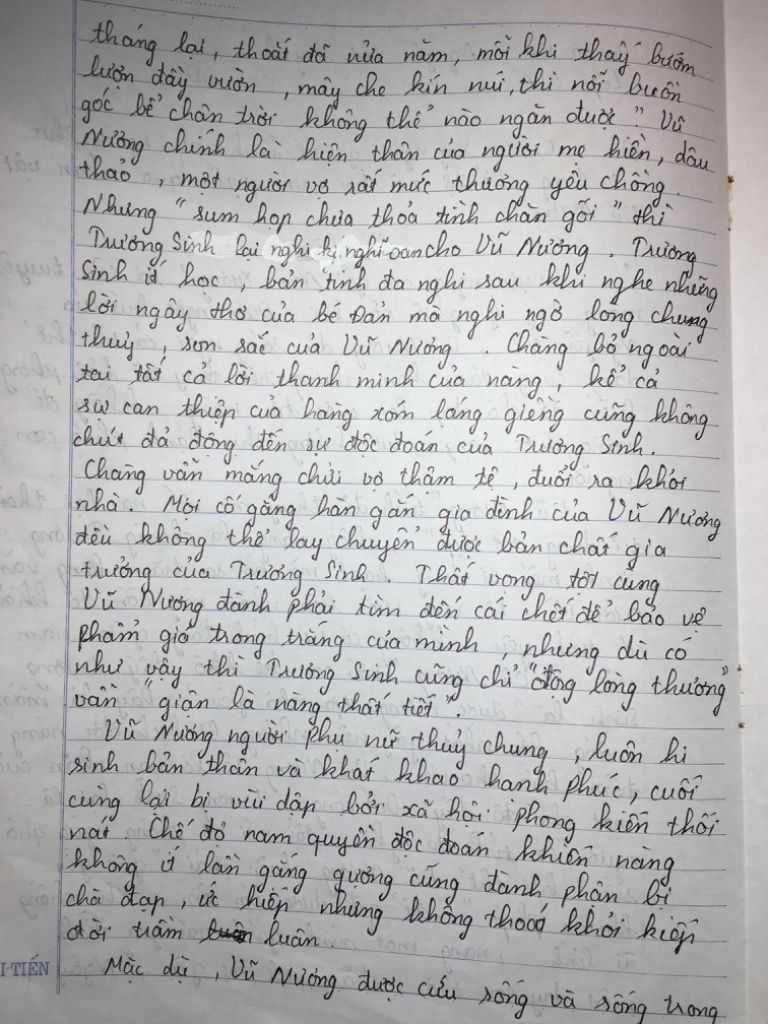 tháng lại, thoắt đã nửa năm, mỗi khi thấy bướm
lượn đầy vườn, mây che kín núi, thì nỗi buồn
góc bể chân trời không thể nào ngăn được." Vũ
Nương chính là hiện thân của người mẹ hiền, dâu
thảo, một người vợ rất mức thương yêu chồng.
Nhưng "sum họp chưa thỏa tình chăn gối" thì
Trương Sinh lại nghi kị, nghĩ oan cho Vũ Nương. Trương
Sinh ít học, bản tính đa nghi sau khi nghe những
lời ngây thơ của bé Đản mà nghi ngờ lòng chung
thuỷ, son sắc của Vũ Nương. Chàng bỏ ngoài
tai tất cả lời thanh minh của nàng, kể cả
sự can thiệp của hàng xóm láng giềng cũng không
chút đả động đến sự độc đoán của Trương Sinh.
Chàng vẫn mắng chửi vợ thậm tệ, đuổi ra khỏi
nhà. Mọi cố gắng hàn gắn gia đình của Vũ Nương
đều không thể lay chuyển được bản chất gia
trưởng của Trương Sinh. Thất vọng tột cùng
Vũ Nương đành phải tìm đến cái chết để bảo vệ
phẩm giá trong trắng của mình, nhưng dù có
như vậy thì Trương Sinh cũng chỉ "động lòng thương"
vẫn "giận là nàng thất tiết".
Vũ Nương người phụ nữ thuỷ chung, luôn hi
sinh bản thân và khát khao hạnh phúc, cuối
cùng lại bị vùi dập bởi xã hội phong kiến thối
nát. Chế độ nam quyền độc đoán khiến nàng
không ít lần gắng gượng cũng đành phận bị
chà đạp, ức hiếp nhưng không thoát khỏi kiếp
đời trầm luân
Mặc dù, Vũ Nương được cứu sống và sống trong
I TIẾN